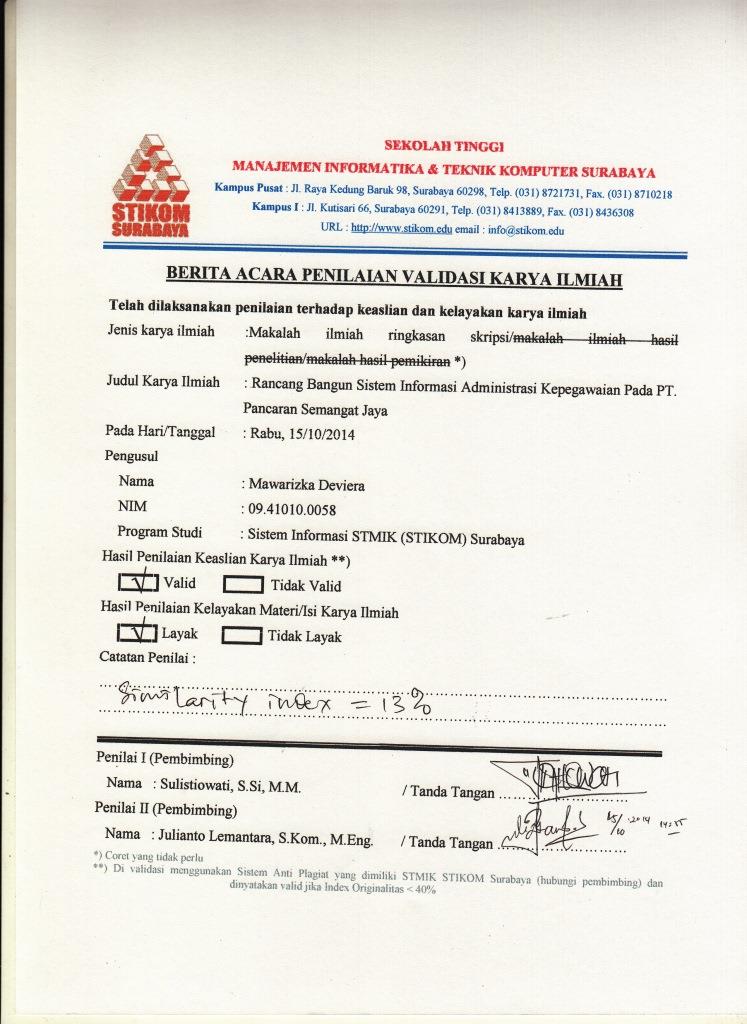 SEKOLAH TINGGI
MANAJEMEN INFORMATIKA & TEKNIK KOMPUTER SURABAYA
Kampus Pusat : Jl. Raya Kedung Baruk 98, Surabaya 60298, Telp. (031) 8721731, Fax. (031) 8710218
Kampus I : Jl. Kutisari 66, Surabaya 60291, Telp. (031) 8413889, Fax. (031) 8436308
URL : http://www.stikom.edu email : info@stikom.edu
STIKOM
SURABAYA
BERITA ACARA PENILAIAN VALIDASI KARYA ILMIAH
Telah dilaksanakan penilaian terhadap keaslian dan kelayakan karya ilmiah
Jenis karya ilmiah :Makalah ilmiah ringkasan skripsi/makalah ilmiah hasil
penelitian/makalah hasil pemikiran *)
Judul Karya Ilmiah : Rancang Bangun Sistem Informasi Administrasi Kepegawaian Pada PT.
Pancaran Semangat Jaya
Pada Hari/Tanggal : Rabu, 15/10/2014
Pengusul
Nama : Mawarizka Deviera
NIM : 09.41010.0058
Program Studi : Sistem Informasi STMIK (STIKOM) Surabaya
Hasil Penilaian Keaslian Karya Ilmiah **)
√ Valid Tidak Valid
Hasil Penilaian Kelayakan Materi/Isi Karya Ilmiah
√ Layak Tidak Layak
Catatan Penilai :
Similarity index = 13%
Penilai I (Pembimbing)
Nama : Sulistiowati, S.Si, M.M. / Tanda Tangan
Penilai II (Pembimbing)
Nama : Julianto Lemantara, S.Kom., M.Eng. / Tanda Tangan 15/10 2014
*) Coret yang tidak perlu
**) Di validasi menggunakan Sistem Anti Plagiat yang dimiliki STMIK STIKOM Surabaya (hubungi pembimbing) dan
dinyatakan valid jika Index Originalitas < 40%